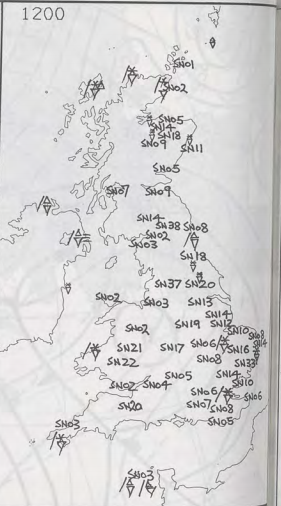 1200
SN01
SN02
SN05
SN14
SN18
SN09
SN11
SN05
SN07 SN09
SN14
SN38 SN08
SN02
SN03
SN18
SN37 SN20
SN02 SN03 SN13
SN14
SN02 SN19 SN12 SN10 SN08
SN14
SN21 SN17 SN06 SN16
SN22 SN08 SN33
SN05 SN14
SN02 SN04 SN10
SN06 SN06
SN20 SN07 SN08
SN03 SN05
SN03